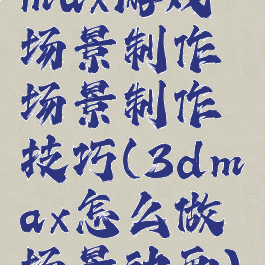 max游戏
场景制作
场景制作
技巧(3dm
ax怎么做
场景动画)